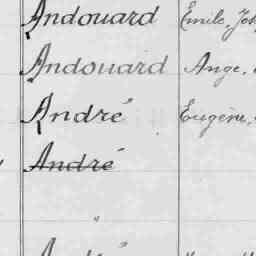 Andouard Emile, Jos
Andouard Ange,
André Eugène,
André
"